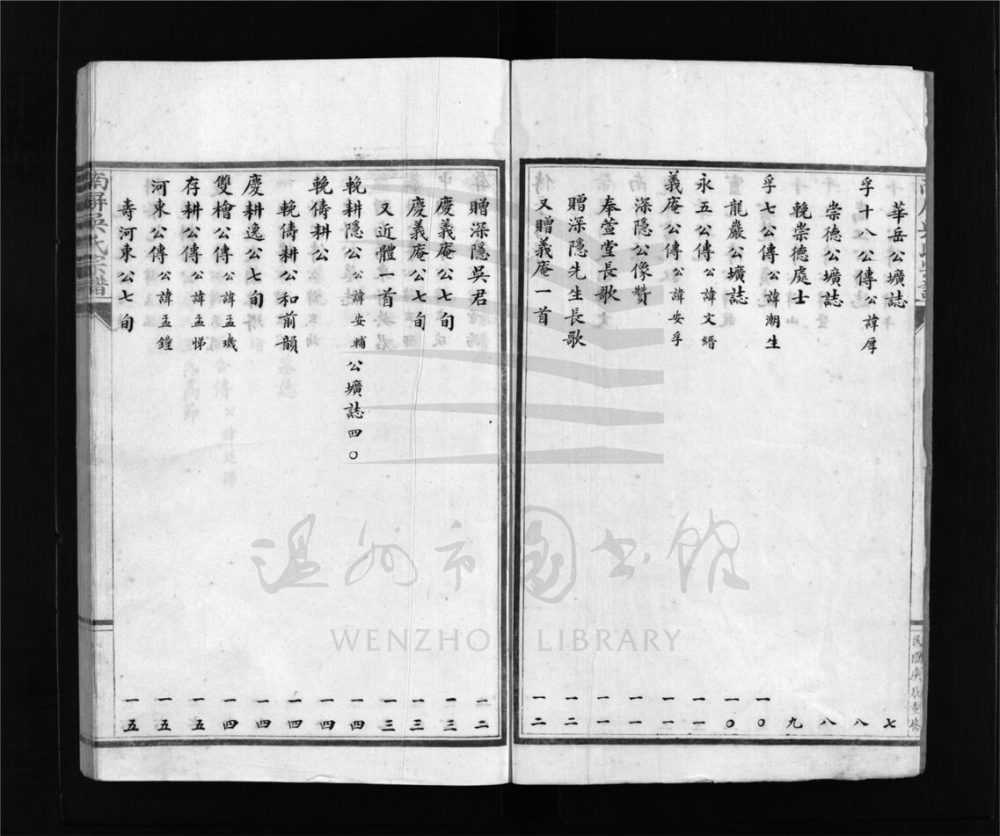 華岳公壙誌 七
孚十八公傳 公諱厚 八
崇德公壙誌 八
輓崇德處士 九
孚七公傳 公諱潮生 一〇
龍巖公壙誌 一〇
永五公傳 公諱文縉 一一
義庵公傳 公諱安孚 一一
深隱公像贊 一一
奉萱堂長歌 一一
贈深隱先生長歌 一二
又贈義庵一首 一二
贈深隱吳君 一二
慶義庵公七旬 一三
慶義庵公七旬 一三
又近體一首 一三
輓耕隱公 公諱安輔 公壙誌四〇 一四
輓儔耕公 一四
輓儔耕公和前韻 一四
慶耕逸公七旬 一四
雙檜公傳 公諱孟璣 一四
存耕公傳 公諱孟悌 一五
河東公傳 公諱孟鐘 一五
壽河東公七旬 一五
南屏吳氏宗譜
民國庚辰重修
温州市图书馆
WENZHOU LIBRARY